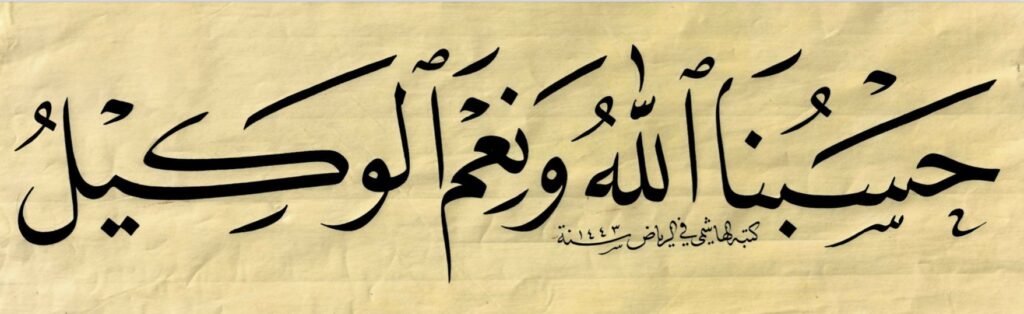 حَسْبُنَا ٱللَّهُ وَنِعْمَ ٱلْوَكِيْلُ
كتبه الهاشمي في الرياض سنة ١٤٤٣